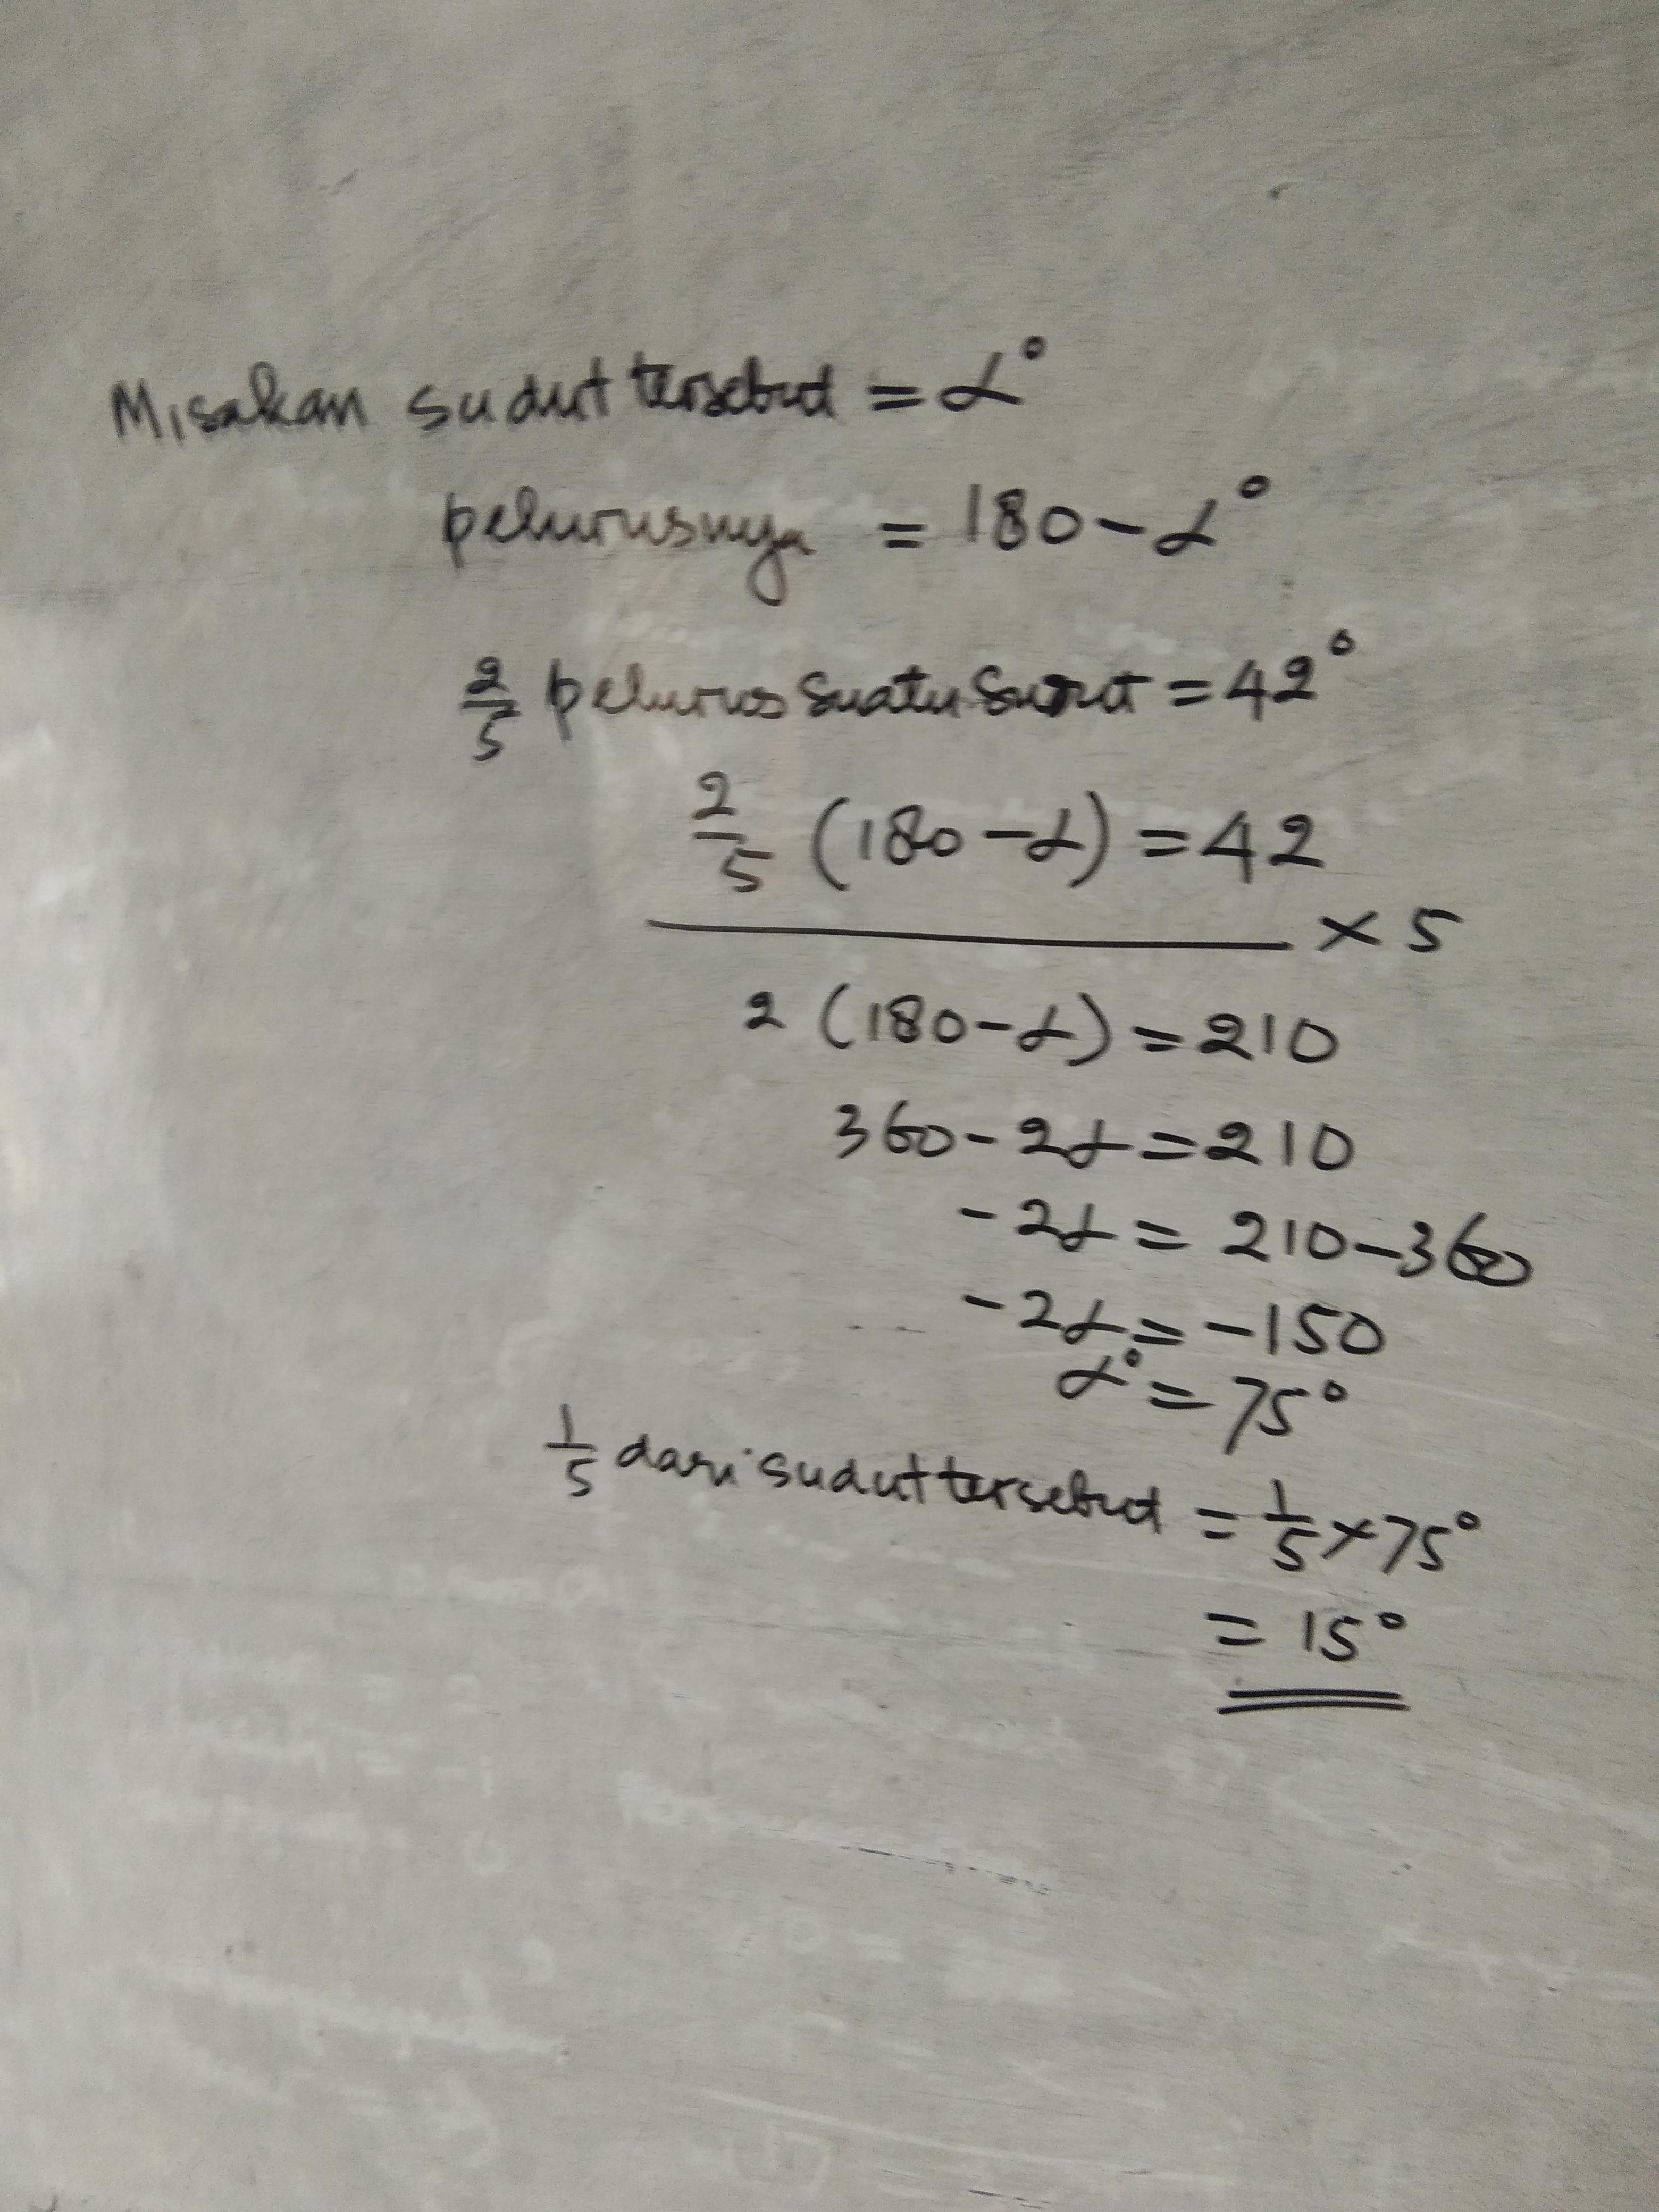 Misakan sudut tersebut = α°
pelurusnya = 180 - α°
2/5 pelurus suatu sudut = 42°
2/5 (180 - α) = 42
× 5
2 (180 - α) = 210
360 - 2α = 210
- 2α = 210 - 360
- 2α = - 150
α° = 75°
1/5 dari sudut tersebut = 1/5 × 75°
= 15°